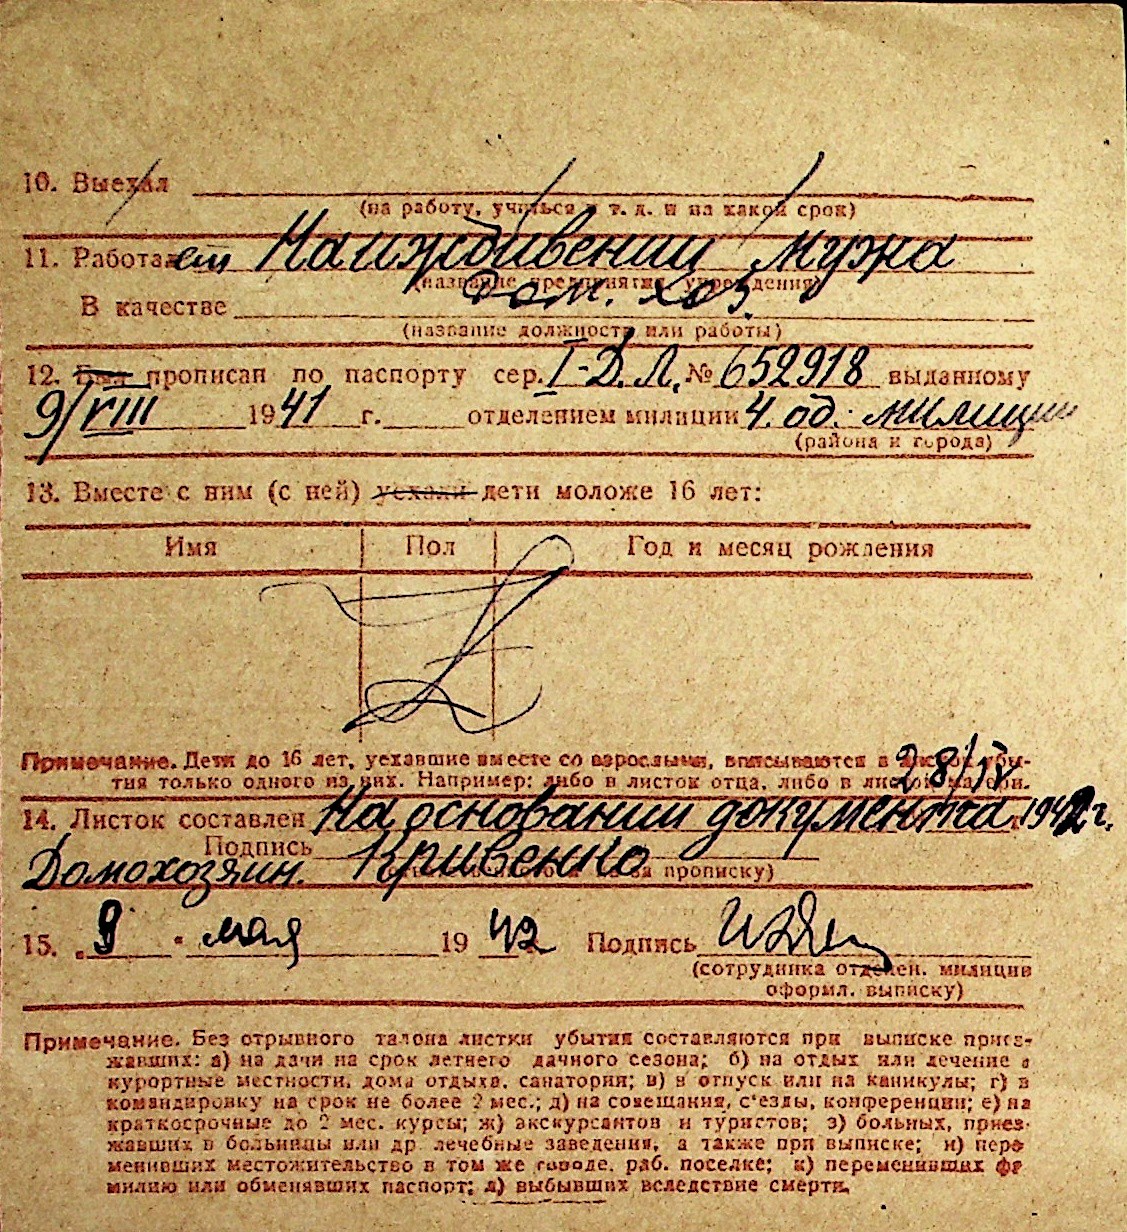 10. Выехал
(на работу, учиться и т. д. и на какой срок)
11. Работает На иждивении мужа
(название предприятия, учреждения)
В качестве дом. хоз.
(название должности или работы)
12. Был прописан по паспорту сер. I-Д.Л. № 652918 выданному
9/VIII 1941 г. отделением милиции 4. од. милиции
(района и города)
13. Вместе с ним (с ней) уехали дети моложе 16 лет:
Имя Пол Год и месяц рождения
Примечание. Дети до 16 лет, уехавшие вместе со взрослыми, вписываются в листок убы-
тия только одного из них. Например: либо в листок отца, либо в листок матери.
28/IV
14. Листок составлен На основании документа 1942 г.
Подпись Кривенко
Домохозяин. за прописку)
15. „9" мая 1942 Подпись
(сотрудника отделен. милиции
оформл. выписку)
Примечание. Без отрывного талона листки убытия составляются при выписке приез-
жавших: а) на дачи на срок летнего дачного сезона; б) на отдых или лечение в
курортные местности, дома отдыха, санатории; в) в отпуск или на каникулы; г) в
командировку на срок не более 2 мес.; д) на совещания, с'езды, конференции; е) на
краткосрочные до 2 мес. курсы; ж) экскурсантов и туристов; з) больных, приез-
жавших в больницы или др лечебные заведения, а также при выписке; и) пере
менивших местожительство в том же городе, раб. поселке; к) переменивших фа
милию или обменявших паспорт; л) выбывших вследствие смерти.